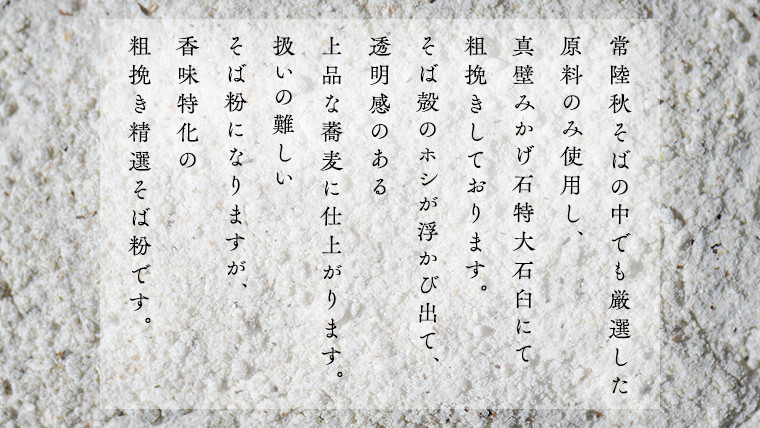 常陸秋そばの中でも厳選した
原料のみ使用し、
真壁みかげ石特大石臼にて
粗挽きしております。
そば殻のホシが浮かび出て、
透明感のある
上品な蕎麦に仕上がります。
扱いの難しい
そば粉になりますが、
香味特化の
粗挽き精選そば粉です。